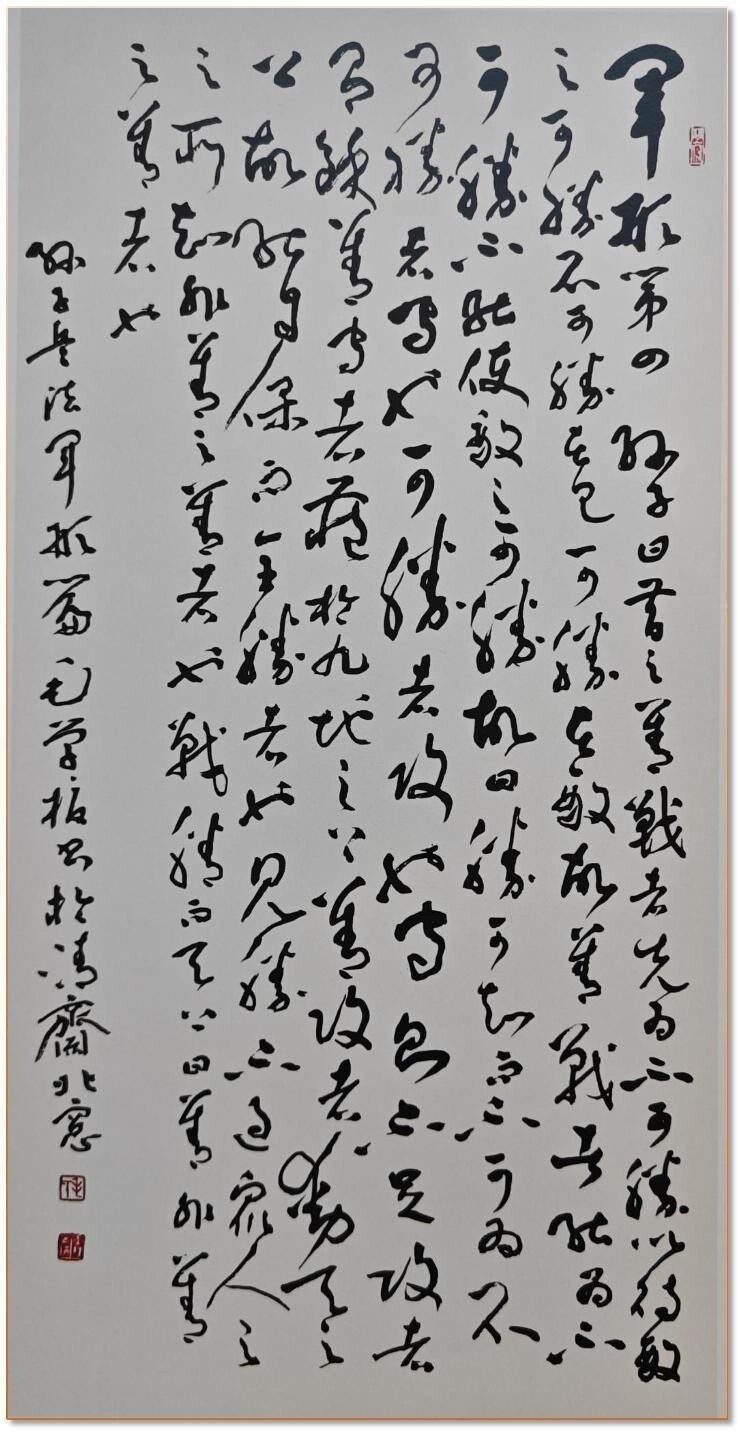 軍形第四 孫子曰昔之善戰者先為不可勝以待敵
之可勝不可勝在己可勝在敵故善戰者能為不
可勝不能使敵之可勝故曰勝可知而不可為不
可勝者守也可勝者攻也守則不足攻者
有餘善守者藏於九地之下善攻者動天之
下故能自保而全勝者也見勝不過眾人之
之所知非善之善者也戰勝而天下曰善非善
之善者也
孫子兵法軍形篇毛学书於清齋北窓